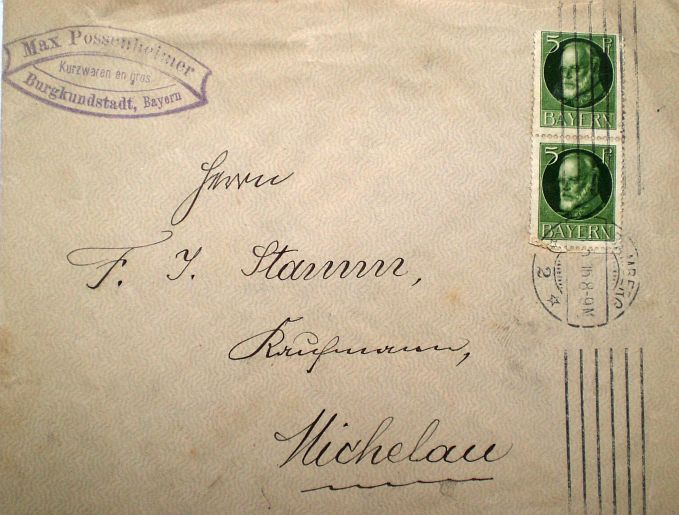 Max Possenheimer
Kurzwaren en gros
Burgkundstadt, Bayern
5 Pf
BAYERN
5 Pf
BAYERN
2
16.8-9N
Herrn
F. J. Stamm,
Kaufmann,
Michelau